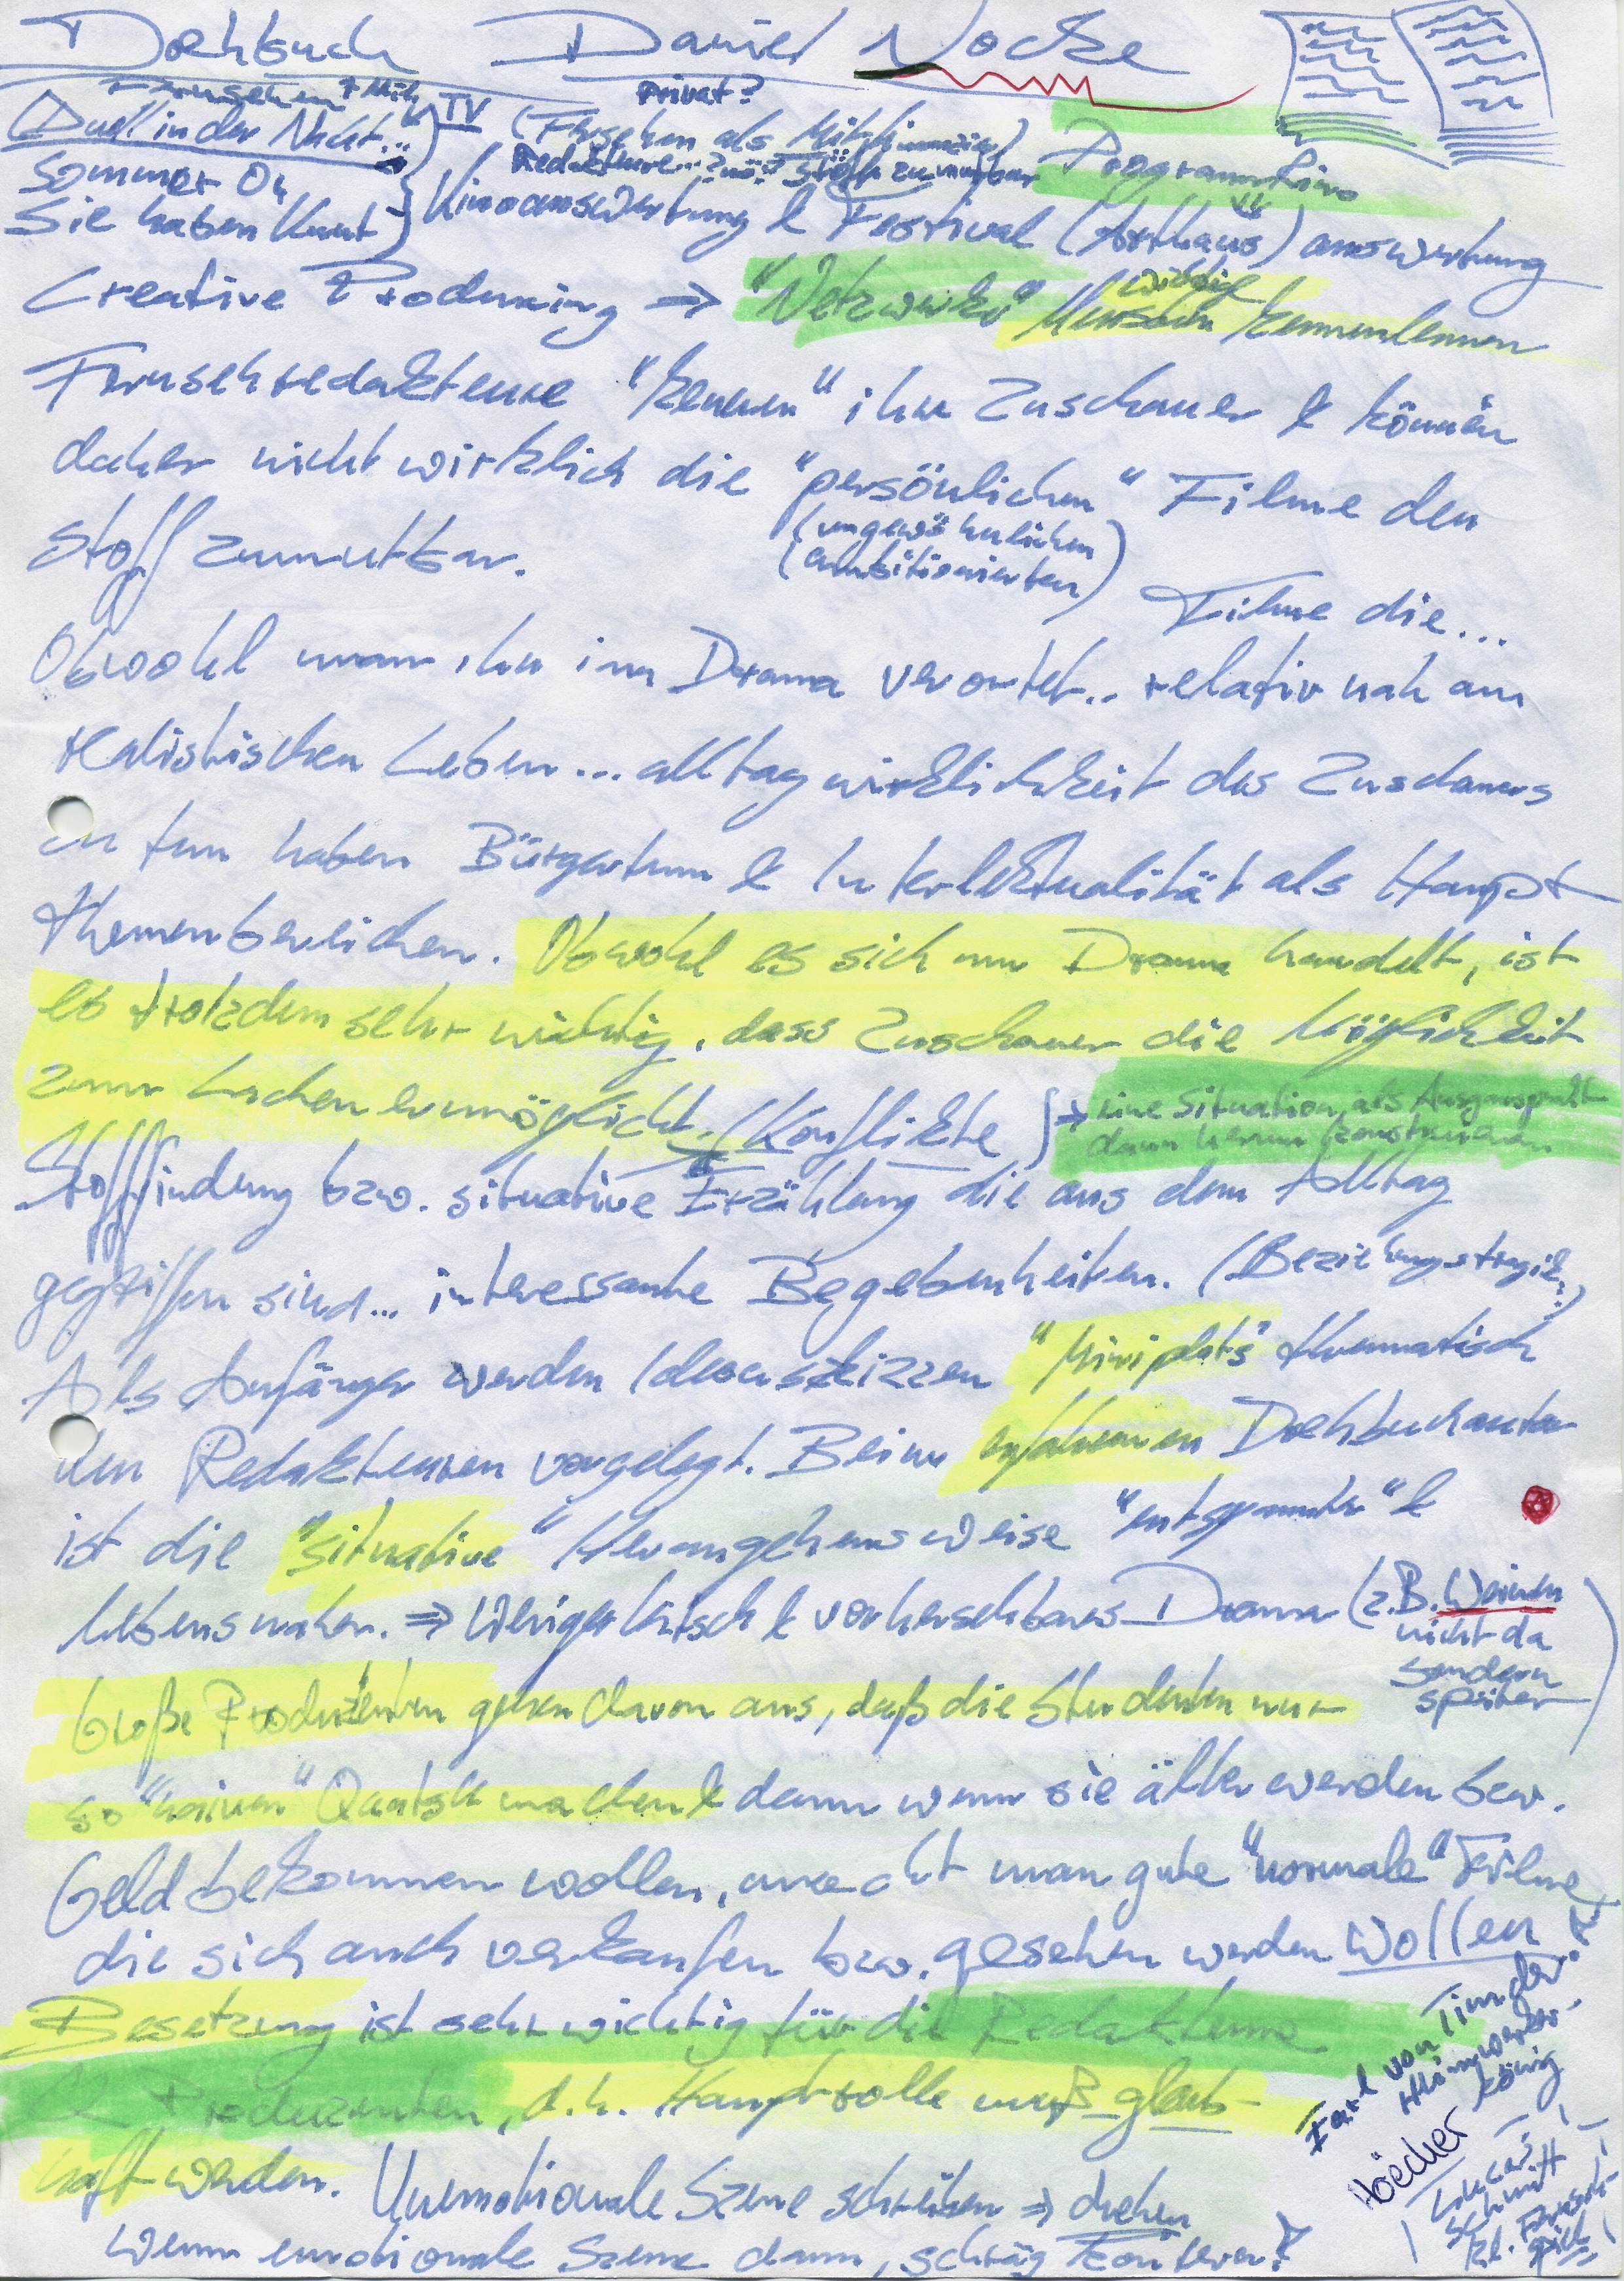 Drehbuch Daniel Nocke
Fernsehen
Privat?
Duell in der Nacht...
TV
(Fernsehen als
Redakteure...? Stoff zumutbar
Programmkino
Sommer 04
Sie haben Knut
Kinoauswertung & Festival (Arthaus) auswertung
Creative Producing ⇒ "Netzwerke" Menschen kennenlernen
wichtig
Fernsehredakteure "kennen" ihre Zuschauer & können
daher nicht wirklich die "persönlichen" Filme den
(ungewöhnlichen
ambitionierten)
Stoff zumutbar.
Filme die...
Obwohl man ihn im Drama verortet.. relativ nah am
realistischen Leben... alltagwirklichkeit des Zuschauers
zu tun haben Bürgertum & Interlektualität als Haupt
themenbereichen. Obwohl es sich um Drama handelt, ist
es trotzdem sehr wichtig, dass Zuschauer die Möglichkeit
zum Lachen ermöglicht. (Konflikte
⇒ eine Situation, als Ausgangspunkt
dann herum konstruieren
Stofffindung bzw. situative Erzählung die aus dem Alltag
gegriffen sind... interessante Begebenheiten. (Beziehungstragik)
Als Anfänger werden Ideenskizzen "Miniplots" thematisch
den Redakteuren vorgelegt. Beim erfahrenen Drehbuchautor
ist die "situative" Herangehensweise "entspannter" &
lebensnaher. ⇒ Weniger kitsch & vorhersehbares Drama (z.B. Weinen
nicht da
sondern
später)
Große Produzenten gehen davon aus, daß die Studenten nur
so "naiven" Quatsch machen & dann wenn sie älter werden bzw.
Geld bekommen wollen, macht man gute "normale" Filme
die sich auch verkaufen bzw. gesehen werden wollen
Besetzung ist sehr wichtig für die Redakteure
& Produzenten, d.h. Hauptrolle muß glaub-
haft werden. Unemotionale Szene schreiben ⇒ drehen
wenn emotionale Szene dann, schräg kontern?
von Tim der
Heimwerker-
könig
Höecker
Lucas
Schmitt